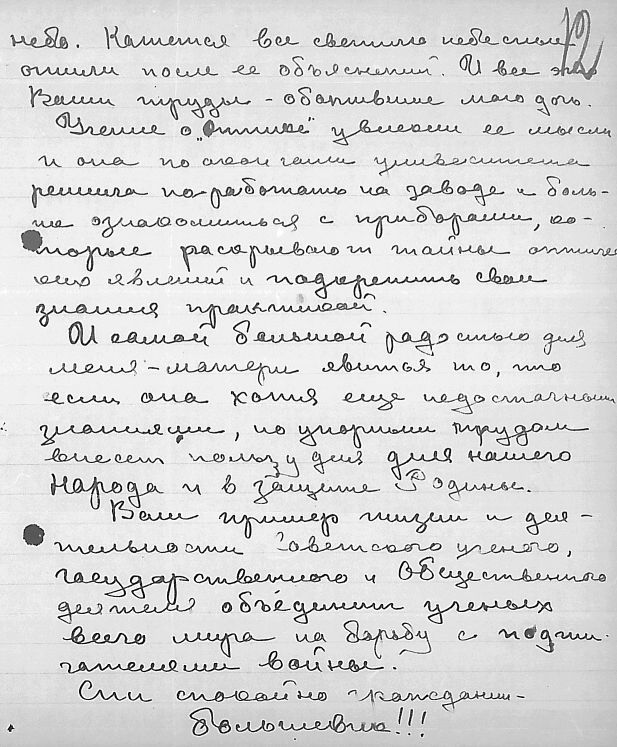 12
небо. Кажется все светила небесные
ожили после ее объяснений. И все это
Ваши труды – обогатившие мою дочь.
Учение о „Оптике" увлекли ее мысли
и она по окончании университета
решила поработать на заводе и боль-
ше ознакомиться с приборами, ко-
торые раскрывают тайны оптичес
ких явлений и подкрепить свои
знания практикой.
И самой большой радостью для
меня – матери явиться то, что
если она хотя еще недостачными
знаниями, но упорным трудом
внесет пользу для для нашего
народа и в защите Родины.
Ваш пример жизни и дея-
тельности Советского ученого,
государственного и Общественного
деятеля объединит ученых
всего мира на борьбу с поджи-
гателями войны.
Спи спокойно гражданин –
большевик!!!